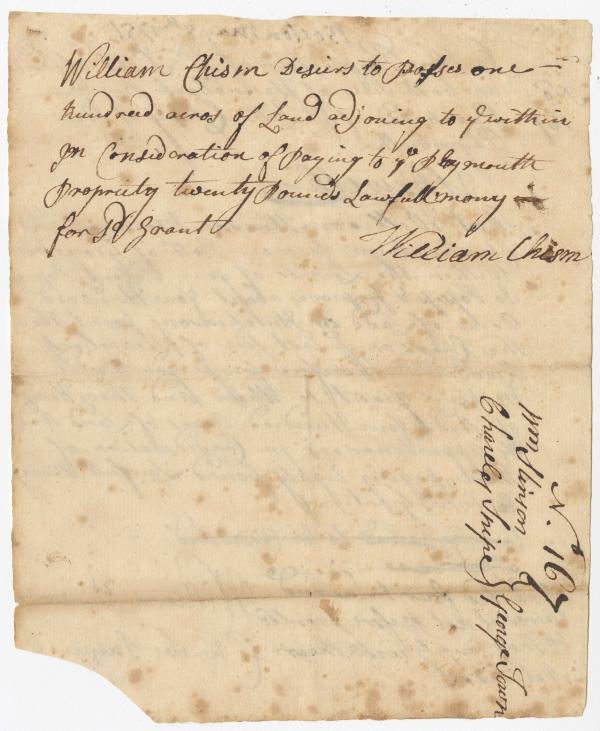 William Chism Desiers to posses one
hundred acros of Land adjoning to ye within
In Consideration of Paying to ye Plymouth
Propriety twenty Pounds Lawfull mony
for Sd Grant
William Chism
No. 167
Wm Stinson
Chareles Snipe } George Town